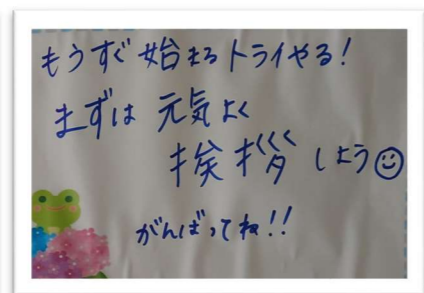 もうすぐ始まるトライやる!
まずは元気よく
挨拶しよう☺
がんばってね!!